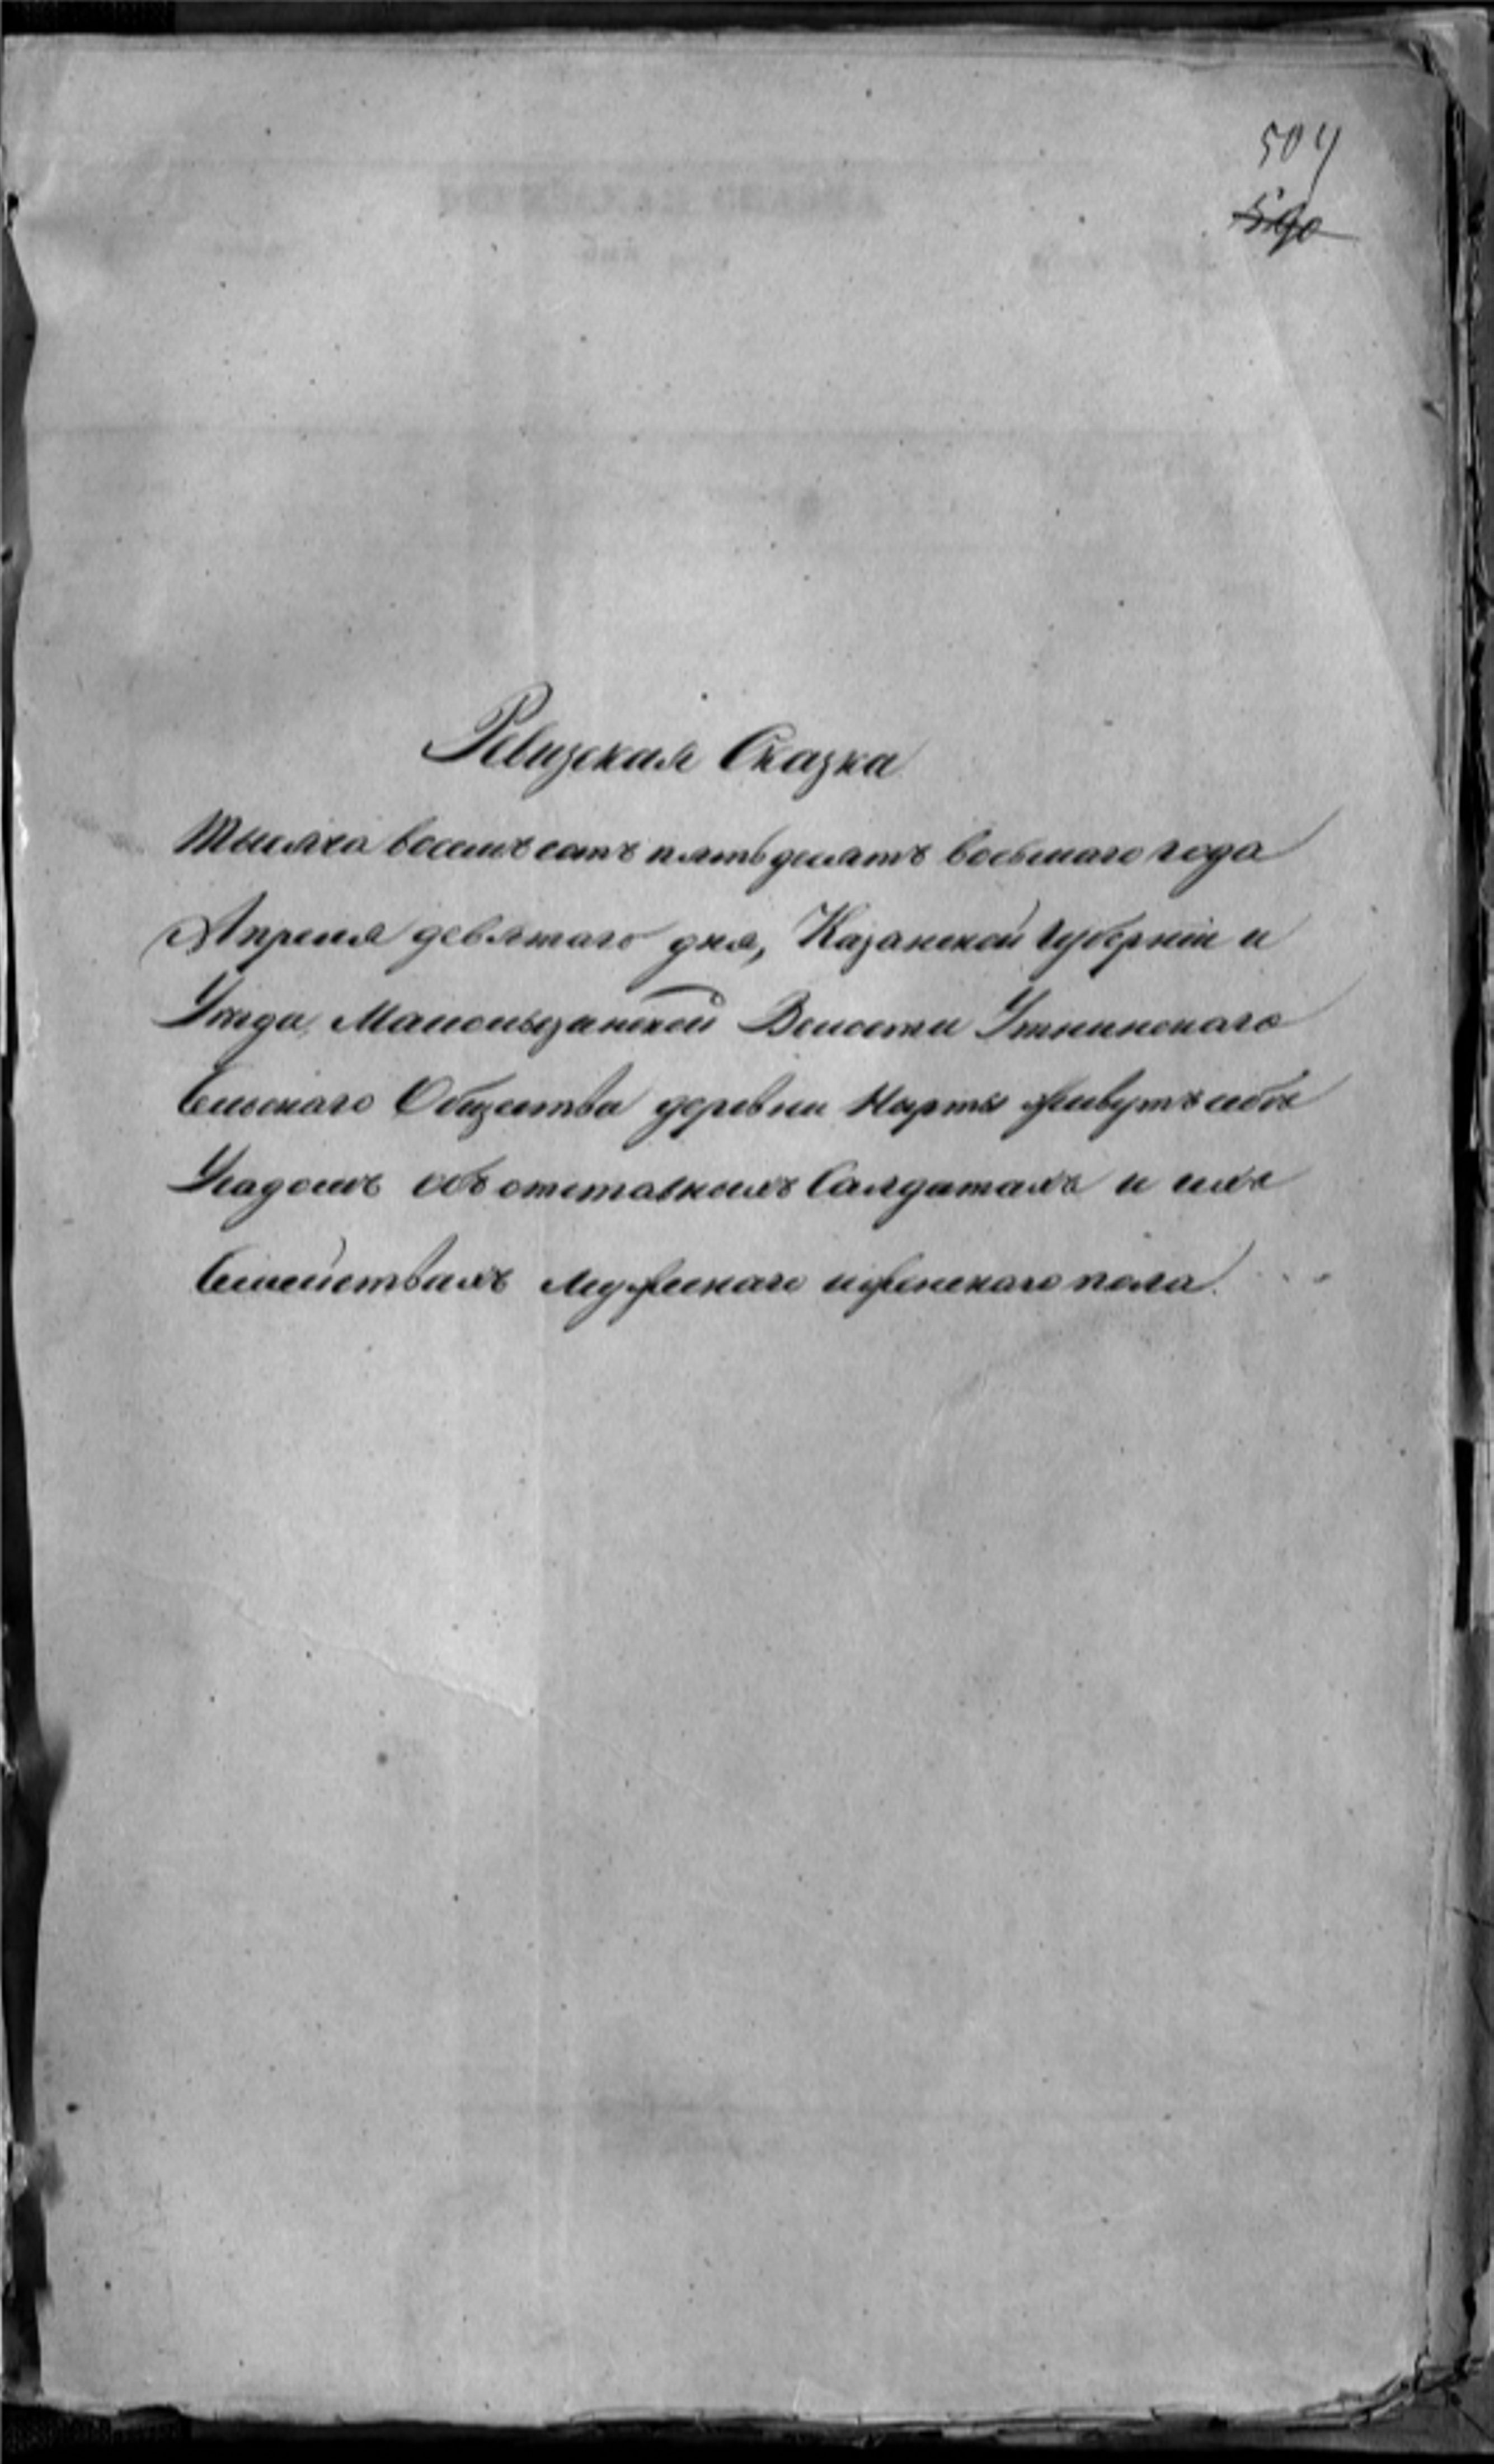 504
590
Ревизская Сказка
Тысяча восемьсотъ пятьдесятъ восьмаго года
Апреля девятаго дня, Казанской Губерніи и
Уезда, Волости
Сельскаго Общества деревни живутъ
объ отставныхъ Салдатахъ и ихъ
Семействахъ Мужескаго и женскаго пола.